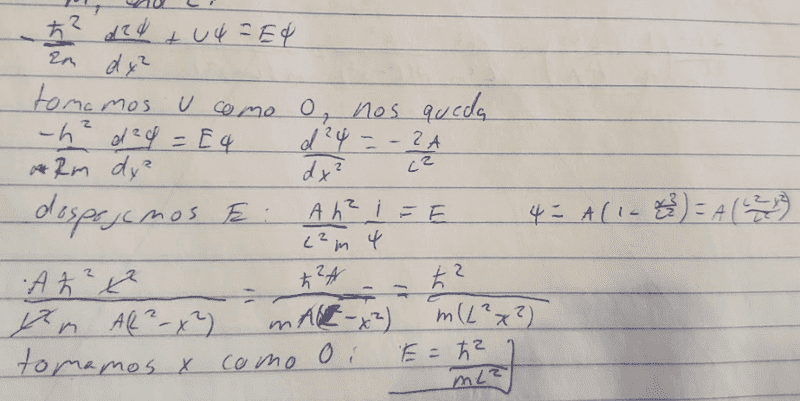 -ħ²/2m d²ψ/dx² + Uψ = Eψ
tomamos U como 0, nos queda
-ħ²/2m d²ψ/dx² = Eψ    d²ψ/dx² = - 2A/L²
despejemos E: Aħ²/L²m 1/ψ = E    ψ = A(1 - x²/L²) = A(L²-x²/L²)
Aħ²L²/L²m A(L²-x²) = ħ²A/mA(L²-x²) = = ħ²/m(L²x²)
tomamos x como 0: E = ħ²/mL²